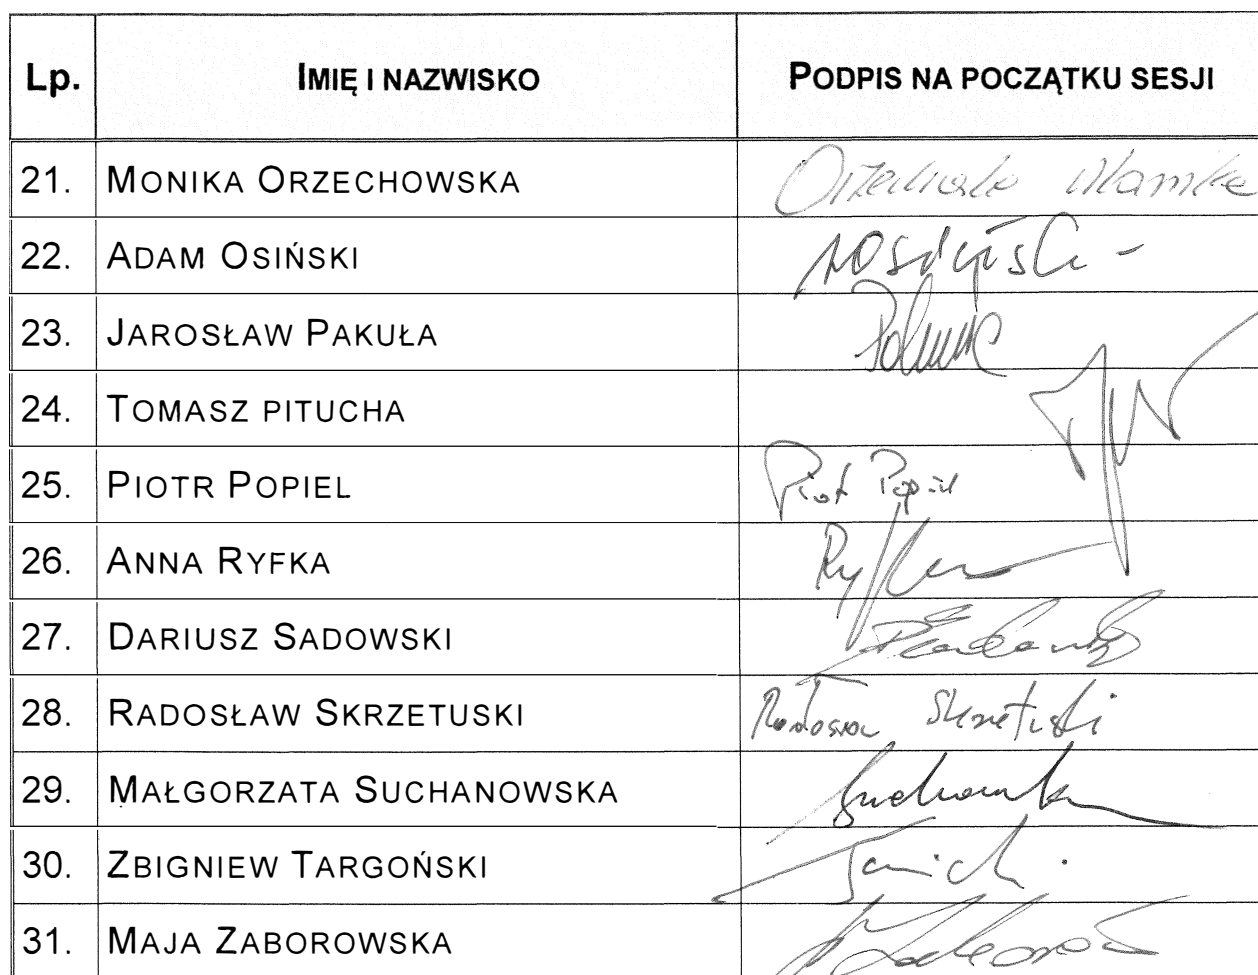 Lp. IMIĘ I NAZWISKO PODPIS NA POCZĄTKU SESJI
21. MONIKA ORZECHOWSKA
22. ADAM OSIŃSKI
23. JAROSŁAW PAKUŁA
24. TOMASZ PITUCHA
25. PIOTR POPIEL Piotr Popiel
26. ANNA RYFKA Ryfka
27. DARIUSZ SADOWSKI
28. RADOSŁAW SKRZETUSKI Radosław Skrzetuski
29. MAŁGORZATA SUCHANOWSKA
30. ZBIGNIEW TARGOŃSKI
31. MAJA ZABOROWSKA